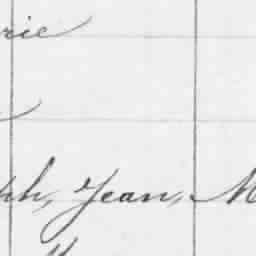 rie
ph, Jean, M